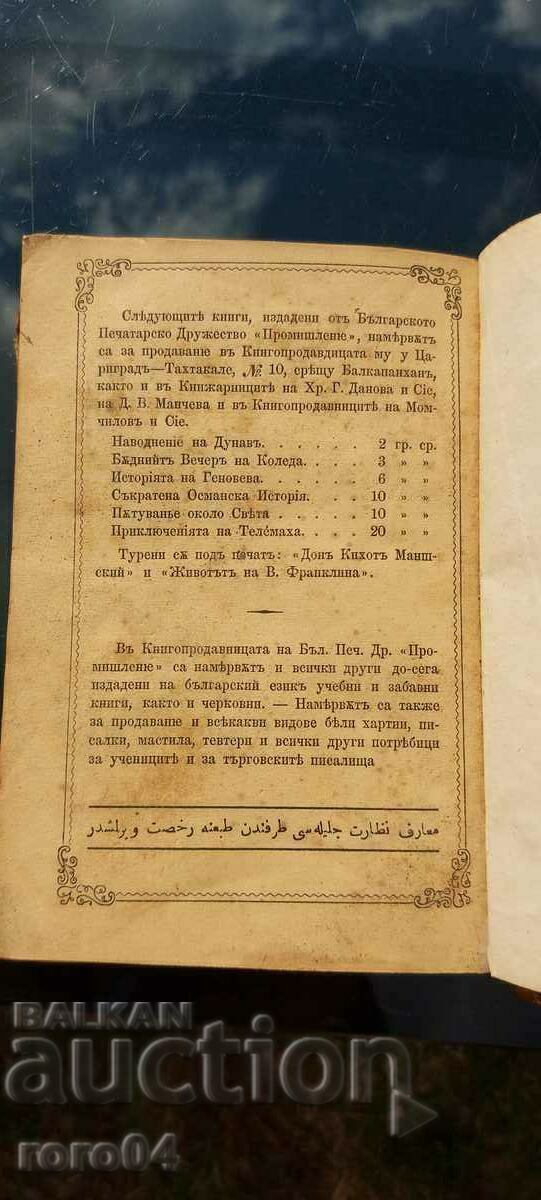 Слѣдующитѣ книги, издадени отъ Българското
Печатарско Дружество «Промишление», намѣрвѫтъ
са за продаванiе въ Книгопродавдицата му у Ца-
риградъ—Тахтакале, № 10, срѣщу Балкапанханъ,
както и въ Книжарницитѣ на Хр. Г. Данова и Сіе,
на Д. В. Манчева и въ Книгопродавницитѣ на Мом-
чиловъ и Сіе.
Наводненіе на Дунавъ. . . . . . 2 гр. ср.
Бѫднийтъ Вечеръ на Коледа. . . . 3 » »
Исторіята на Геновева. . . . . 6 » »
Съкратена Османска Исторія. . . 10 » »
Пѫтуванье около Свѣта . . . . . 10 » »
Приключеніята на Телемаха. . . . 20 » »
Турени сѫ подъ печатъ: «Донъ Кихотъ Манш-
ский» и «Животътъ на В. Франклина».
Въ Книгопродавницата на Бъл. Печ. Др. «Про-
мишленіе» са намѣрвѫтъ и всички други до-сега
издадени на българский езикъ учебни и забавни
книги, както и черковни. — Намѣрвѫтъ са также
за продаваніе и всѣкакви видове бѣли хартии, пи-
салки, мастила, тевтери и всички други потрѣбици
за ученицитѣ и за търговскитѣ писалища
معارف نظارت جلیله سی طرفندن طبعنه رخصت ویرلمشدر
BALKAN
auction
roro04